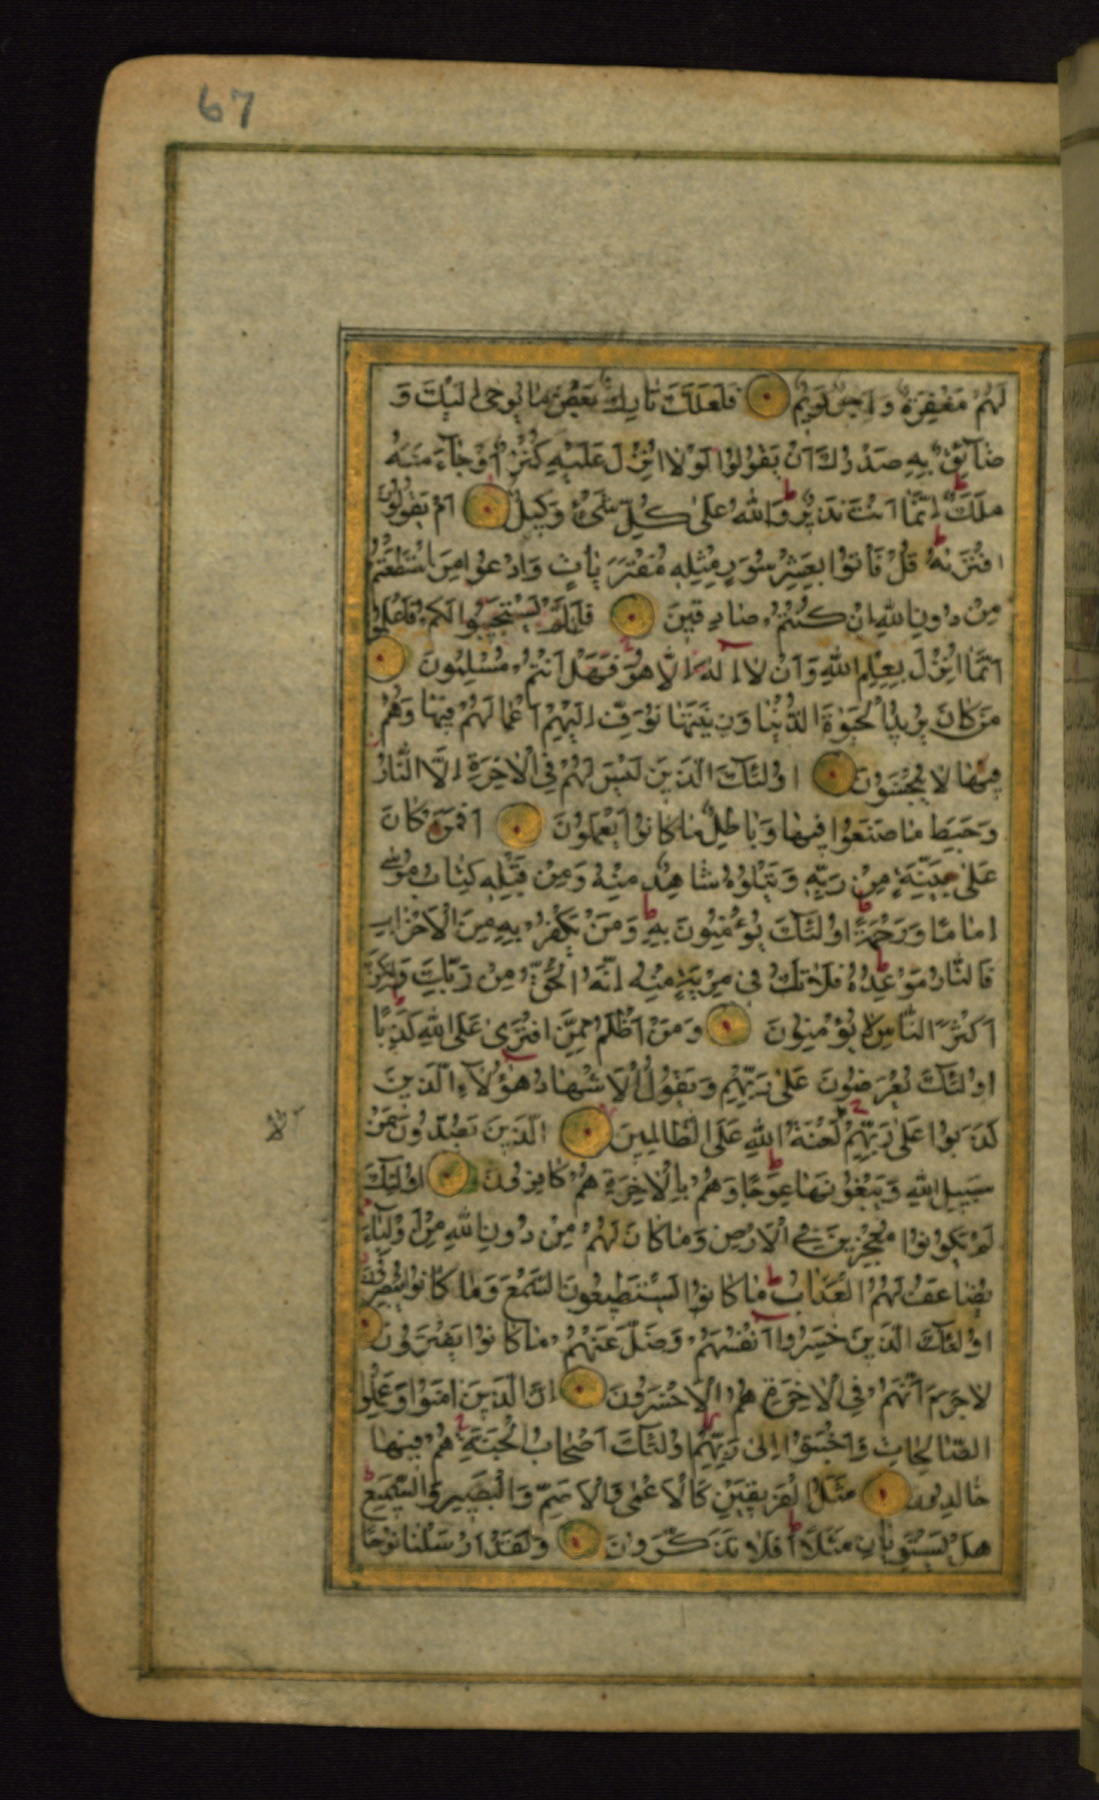 67
لَهُمْ مَغْفِرَةٌ وَاَجْرٌ كَبِيرٌ فَلَعَلَّكَ تَارِكٌ بَعْضَ مَا يُوحٰى اِلَيْكَ وَ
ضَآئِقٌ بِهِ صَدْرُكَ اَنْ يَقُولُوا لَوْلَا اُنْزِلَ عَلَيْهِ كَنْزٌ اَوْ جَآءَ مَعَهُ
مَلَكٌ اِنَّمَا اَنْتَ نَذِيرٌ وَاللهُ عَلٰى كُلِّ شَىْءٍ وَكِيلٌ اَمْ يَقُولُونَ
افْتَرٰيهُ قُلْ فَأْتُوا بِعَشْرِ سُوَرٍ مِثْلِهِ مُفْتَرَيَاتٍ وَادْعُوا مَنِ اسْتَطَعْتُمْ
مِنْ دُونِ اللهِ اِنْ كُنْتُمْ صَادِقِينَ فَاِلَّمْ يَسْتَجِيبُوا لَكُمْ فَاعْلَمُوا
اَنَّمَا اُنْزِلَ بِعِلْمِ اللهِ وَاَنْ لَا اِلٰهَ اِلَّا هُوَ فَهَلْ اَنْتُمْ مُسْلِمُونَ
مَنْ كَانَ يُرِيدُ الْحَيٰوةَ الدُّنْيَا وَزِينَتَهَا نُوَفِّ اِلَيْهِمْ اَعْمَالَهُمْ فِيهَا وَهُمْ
فِيهَا لَا يُبْخَسُونَ اُولٰئِكَ الَّذِينَ لَيْسَ لَهُمْ فِى الْاٰخِرَةِ اِلَّا النَّارُ
وَحَبِطَ مَا صَنَعُوا فِيهَا وَبَاطِلٌ مَا كَانُوا يَعْمَلُونَ اَفَمَنْ كَانَ
عَلٰى بَيِّنَةٍ مِنْ رَبِّهِ وَيَتْلُوهُ شَاهِدٌ مِنْهُ وَمِنْ قَبْلِهِ كِتَابُ مُوسٰى
اِمَامًا وَرَحْمَةً اُولٰئِكَ يُؤْمِنُونَ بِهِ وَمَنْ يَكْفُرْ بِهِ مِنَ الْاَحْزَابِ
فَالنَّارُ مَوْعِدُهُ فَلَا تَكُ فِى مِرْيَةٍ مِنْهُ اِنَّهُ الْحَقُّ مِنْ رَبِّكَ وَلٰكِنَّ
اَكْثَرَ النَّاسِ لَا يُؤْمِنُونَ وَمَنْ اَظْلَمُ مِمَّنِ افْتَرٰى عَلَى اللهِ كَذِبًا
اُولٰئِكَ يُعْرَضُونَ عَلٰى رَبِّهِمْ وَيَقُولُ الْاَشْهَادُ هٰؤُلَآءِ الَّذِينَ
كَذَبُوا عَلٰى رَبِّهِمْ لَعْنَةُ اللهِ عَلَى الظَّالِمِينَ الَّذِينَ يَصُدُّونَ عَنْ
سَبِيلِ اللهِ وَيَبْغُونَهَا عِوَجًا وَهُمْ بِالْاٰخِرَةِ هُمْ كَافِرُونَ اُولٰئِكَ
لَمْ يَكُونُوا مُعْجِزِينَ فِى الْاَرْضِ وَمَا كَانَ لَهُمْ مِنْ دُونِ اللهِ مِنْ اَوْلِيَآءَ
يُضَاعَفُ لَهُمُ الْعَذَابُ مَا كَانُوا يَسْتَطِيعُونَ السَّمْعَ وَمَا كَانُوا يُبْصِرُونَ
اُولٰئِكَ الَّذِينَ خَسِرُوا اَنْفُسَهُمْ وَضَلَّ عَنْهُمْ مَا كَانُوا يَفْتَرُونَ
لَا جَرَمَ اَنَّهُمْ فِى الْاٰخِرَةِ هُمُ الْاَخْسَرُونَ اِنَّ الَّذِينَ اٰمَنُوا وَعَمِلُوا
الصَّالِحَاتِ وَاَخْبَتُوا اِلٰى رَبِّهِمْ اُولٰئِكَ اَصْحَابُ الْجَنَّةِ هُمْ فِيهَا
خَالِدُونَ مَثَلُ الْفَرِيقَيْنِ كَالْاَعْمٰى وَالْاَصَمِّ وَالْبَصِيرِ وَالسَّمِيعِ
هَلْ يَسْتَوِيَانِ مَثَلًا اَفَلَا تَذَكَّرُونَ وَلَقَدْ اَرْسَلْنَا نُوحًا